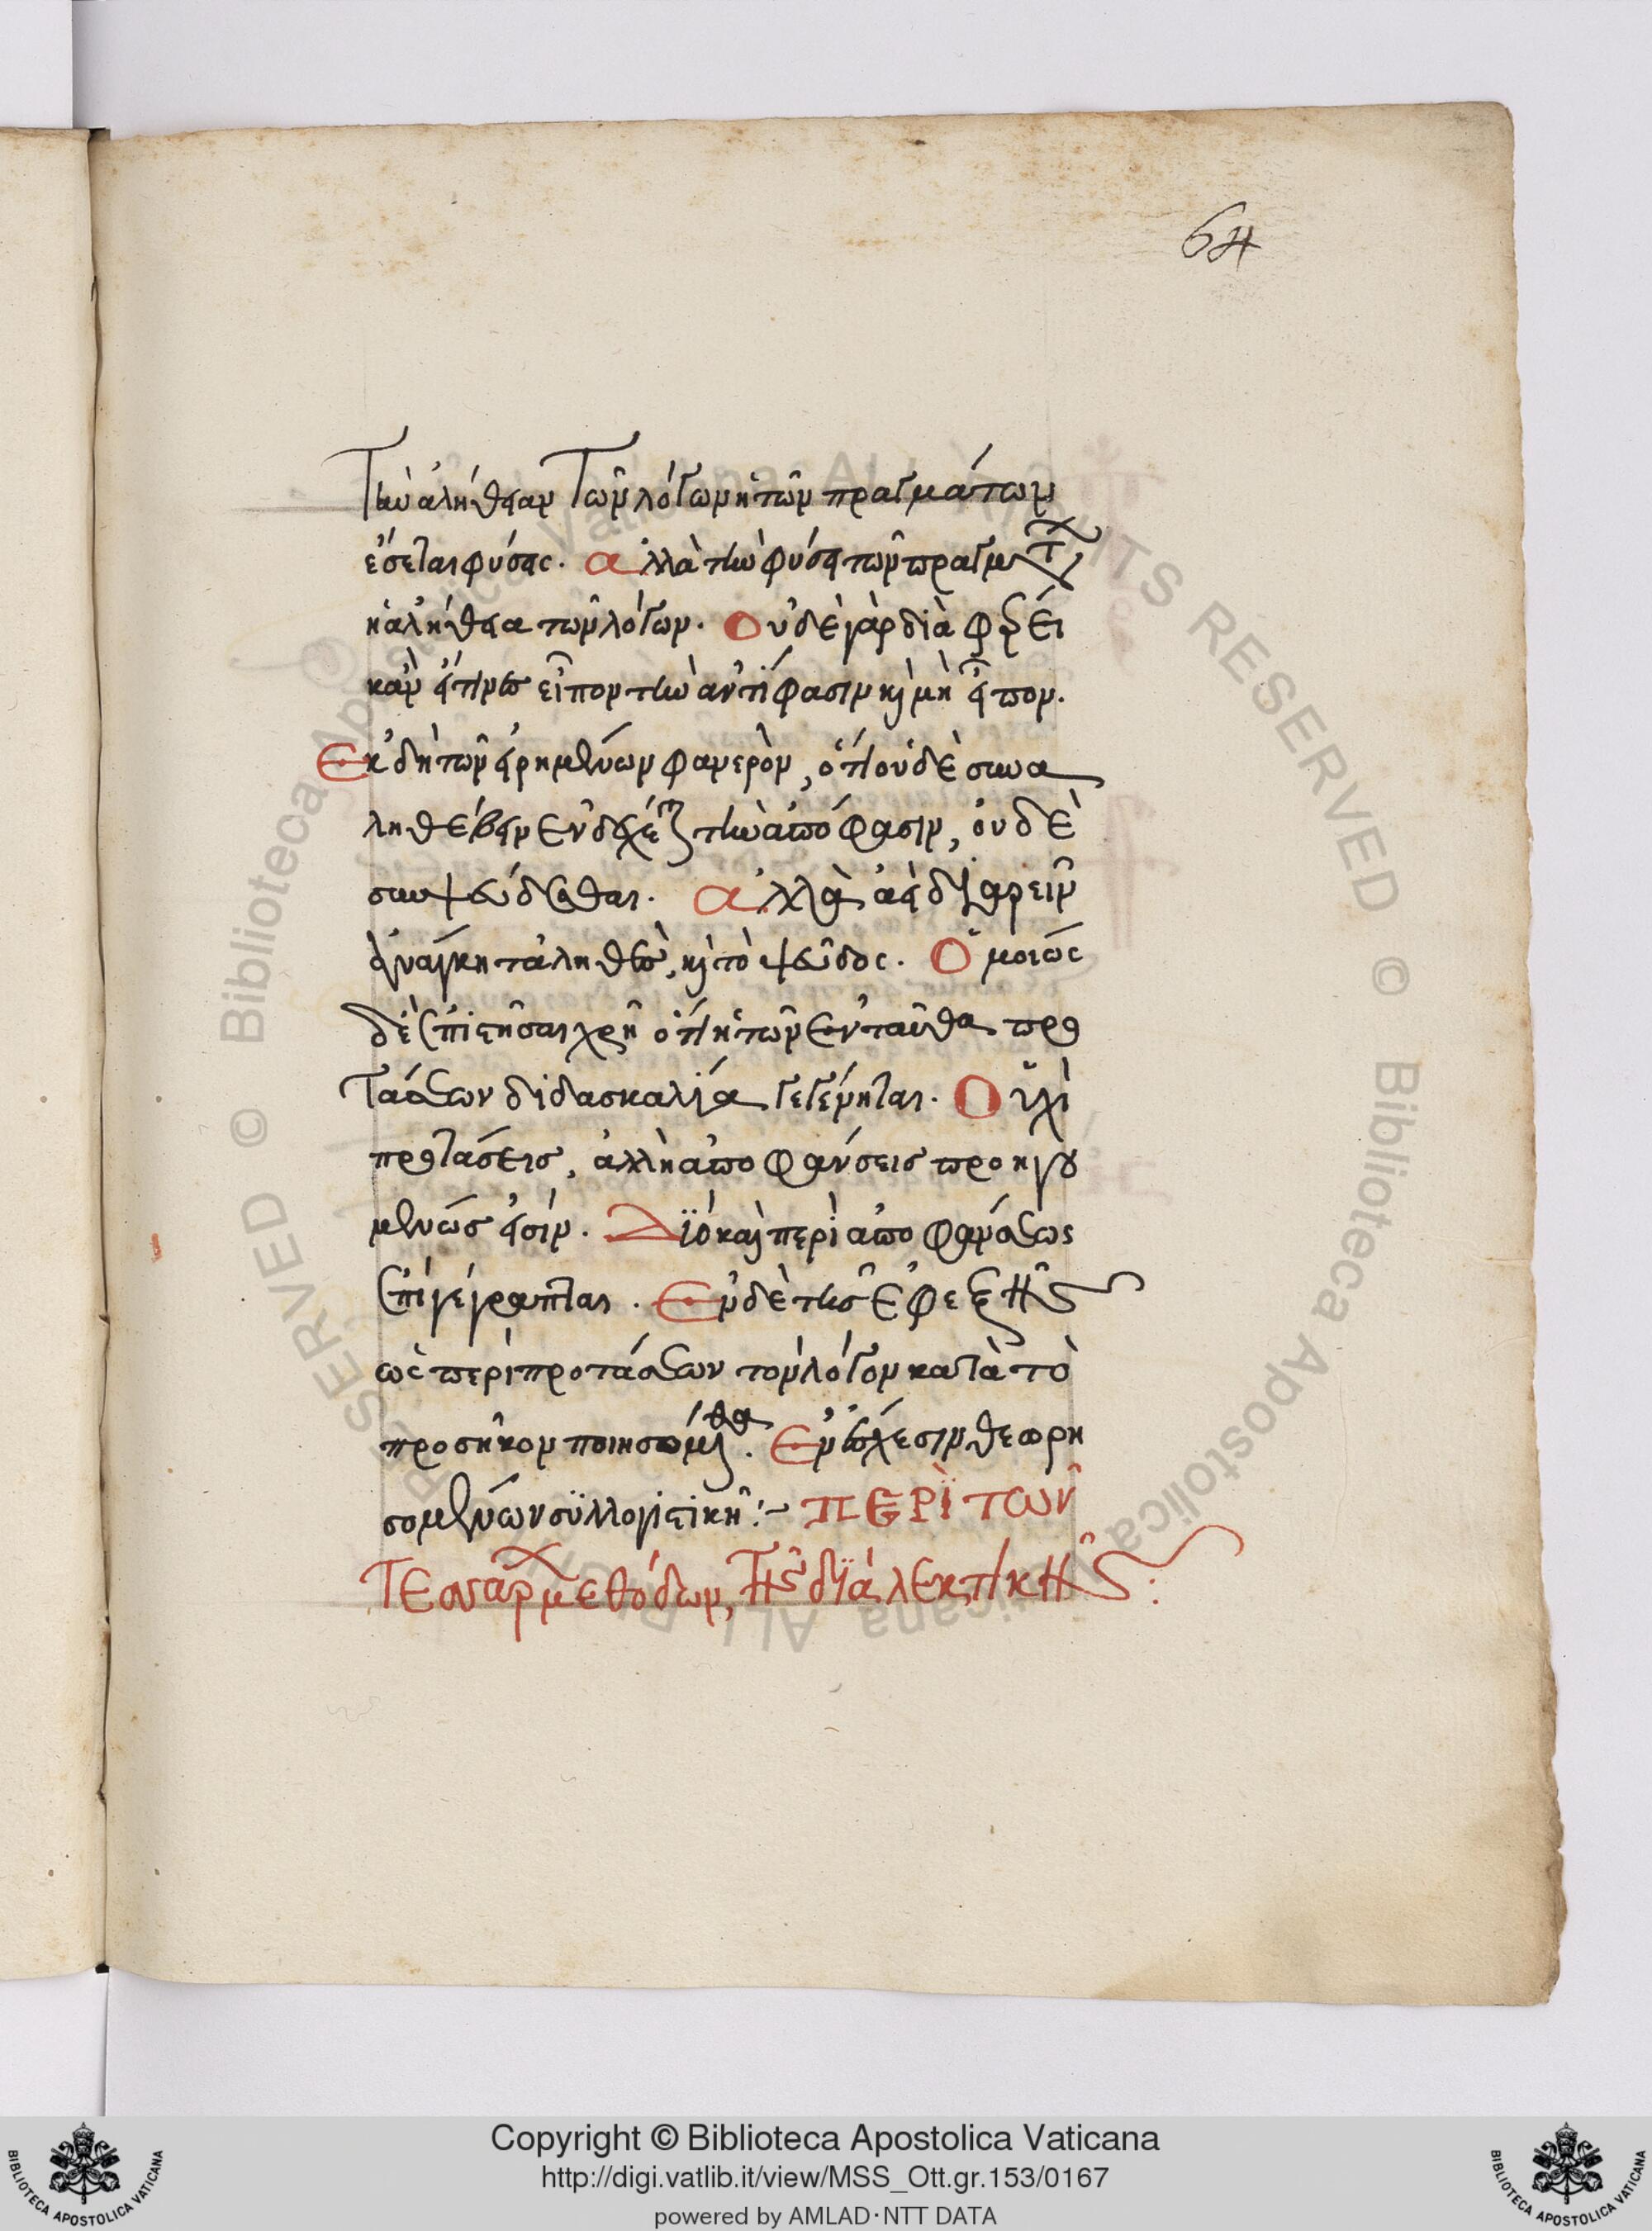 64
τὴν ἀλήθειαν τῶν λόγων ἡ τῶν πραγμάτων
ἕσεται φύσις. ἀλλὰ τὴν φύσει τῶν πραγμάτων
ἡ ἀλήθεια τῶν λόγων. Οὐδὲ γὰρ διαφέρει
κἂν εἴ τινες εἶπον τὴν ἀντίφασιν κὶ μὴ εἶπον.
Ἐκ δὴ τῶν εἰρημένων φανερὸν, ὅτι οὐδὲ συνα
ληθεύειν ἐνδέχεται τὴν ἀπόφασιν, οὐδὲ
συνψεύδεσθαι. ἀλλὰ ἀεὶ διαιρεῖν
ἀνάγκη τἀληθὲς, κὶ τὸ ψεῦδος. Ὁμοίως
δὲ ἐπιστῆσαι χρὴ ὅτι ἡ τῶν ἐνταῦθα προ
τάσεων διδασκαλία γεγένηται. Οὐχὶ
προτάσεις, ἀλλὴ ἀποφάνσεις προηγου
μένως εἰσίν. Διὸ καὶ περὶ ἀποφάνσεως
ἐπιγέγραπται. Ἐν δὲ τοῖς ἐφεξῆς
ὡς περὶ προτάσεων τὸν λόγον κατὰ τὸ
προσῆκον ποιησόμεθα. Ἐν
σομένων συλλογιστικῆ:- ΠΕΡῚ ΤΩΝ
ΤΕσσάρ μεθόδων, τῆς διαλεκτικῆς:
Copyright © Biblioteca Apostolica Vaticana
http://digi.vatlib.it/view/MSS_Ott.gr.153/0167
powered by AMLAD·NTT DATA
BIBLIOTECA APOSTOLICA VATICANA
BIBLIOTECA APOSTOLICA VATICANA
© Biblioteca Apostolica Vaticana ALL RIGHTS RESERVED © Biblioteca Apostolica Vaticana ALL RIGHTS RESERVED